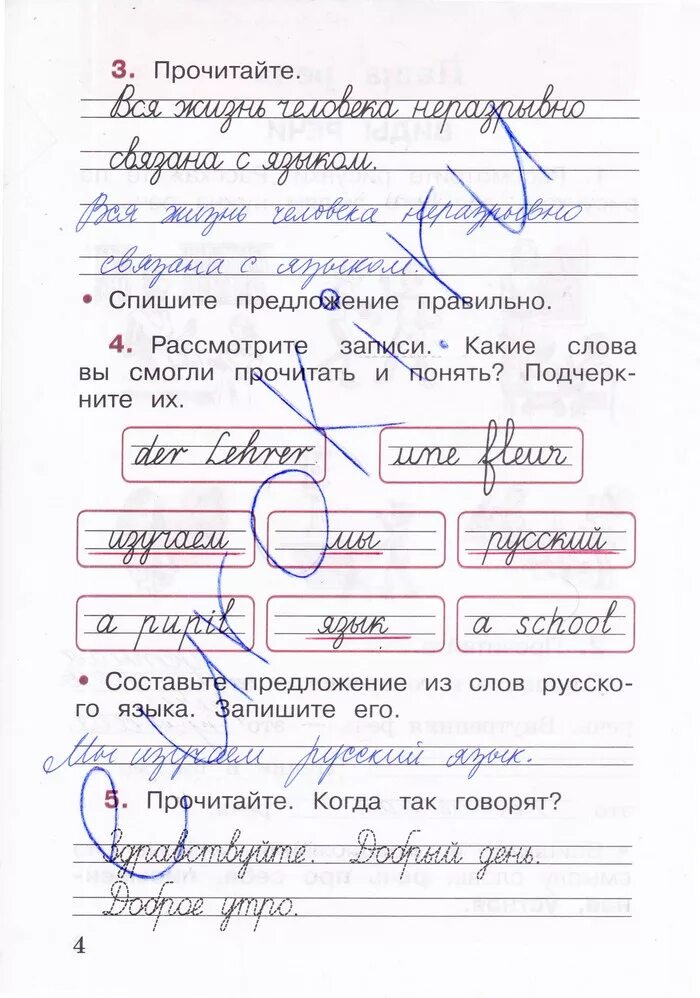 3. Прочитайте.
Вся жизнь человека неразрывно
связана с языком.
Вся жизнь человека неразрывно
связана с языком.
• Спишите предложение правильно.
4. Рассмотрите записи. Какие слова
вы смогли прочитать и понять? Подчерк-
ните их.
der Lehrer une fleur
изучаем мы русский
a pupil язык a school
• Составьте предложение из слов русско-
го языка. Запишите его.
Мы изучаем русский язык.
5. Прочитайте. Когда так говорят?
Здравствуйте. Добрый день.
Доброе утро.
4